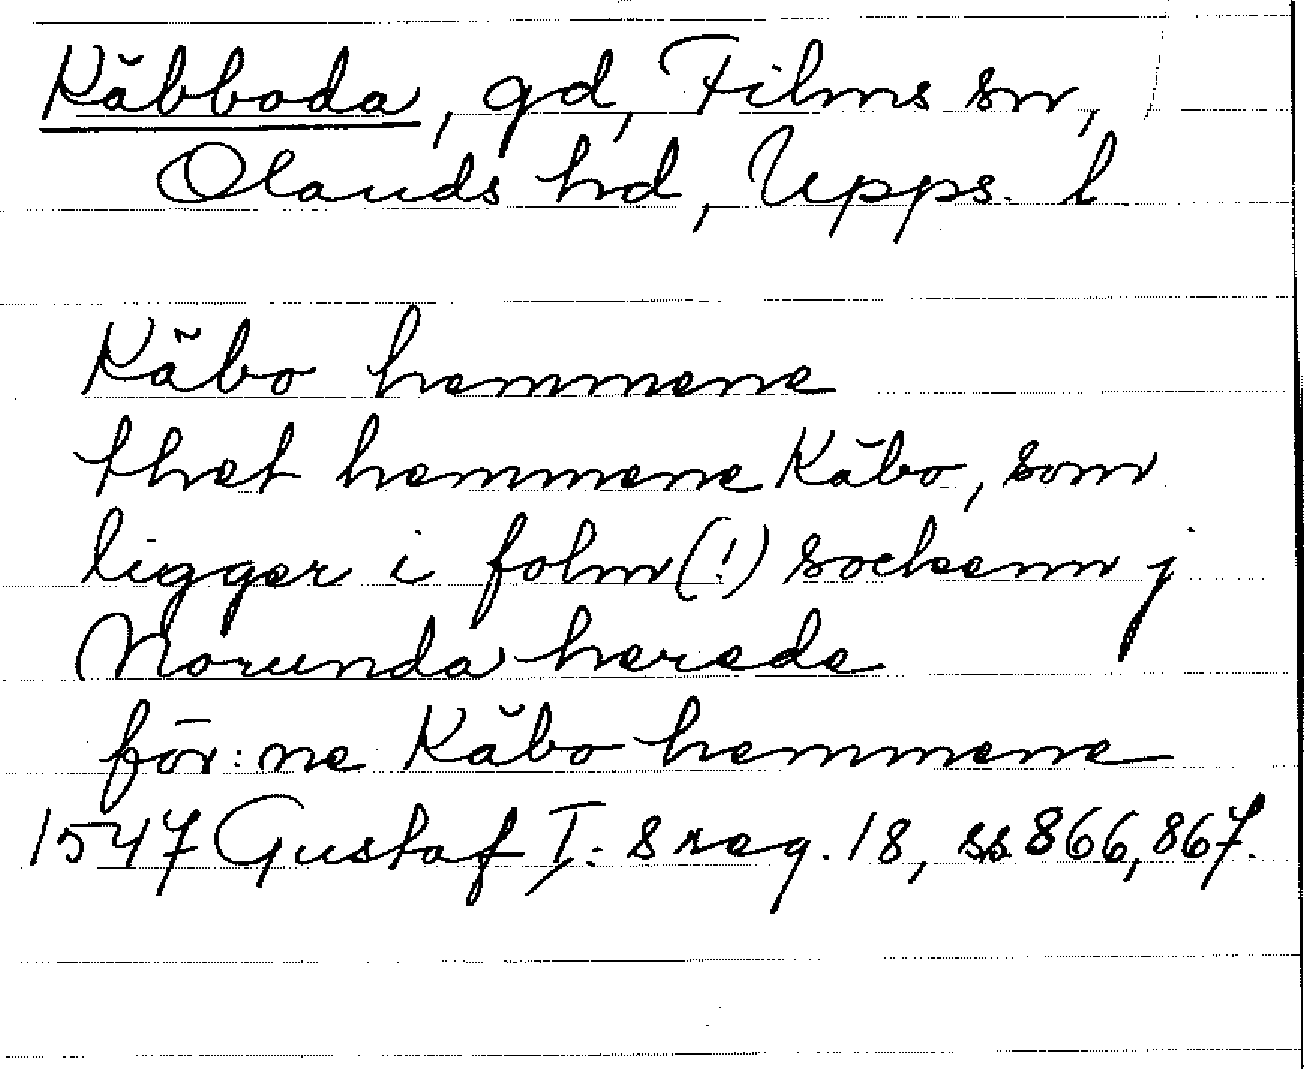 Käbboda, gd, Films sn,
Olands hd, Upps. l
Käbo hemmene
thet hemmene Käbo, som
ligger i folm(!) sockenn j
Norunda herede
för:ne Käbo hemmene
1547 Gustaf I:s reg. 18, ss 866, 867.